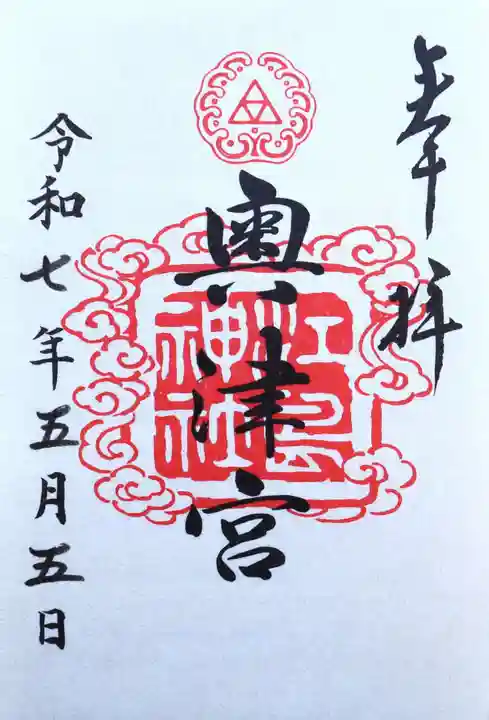 奉拝
奥津宮
江島
神社
令和七年五月五日